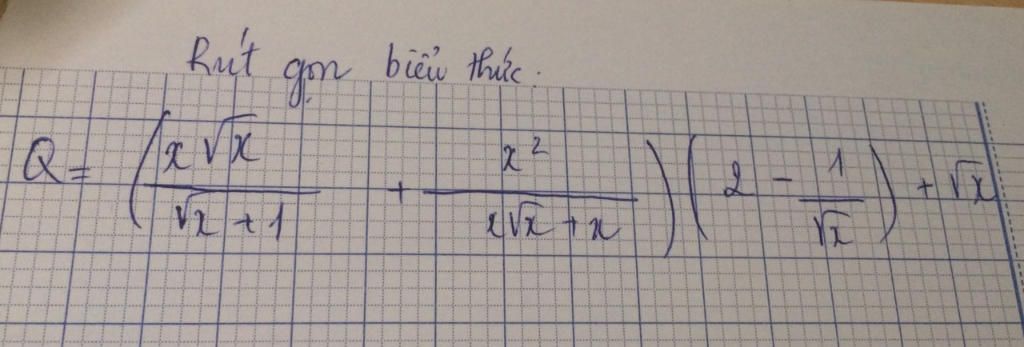 Rút gọn biểu thức.
Q = (x√x / (√x + 1) + x² / (x√x + x)) (2 - 1/√x) + √x